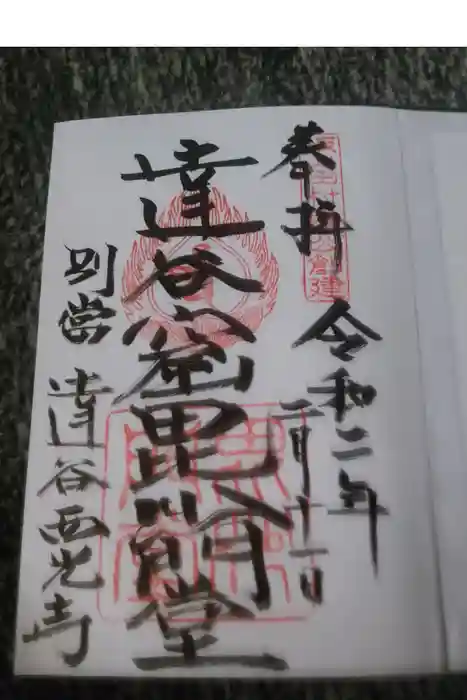 奉拝
令和二年
二月十一日
達谷窟毘沙門堂
別當
達谷西光寺